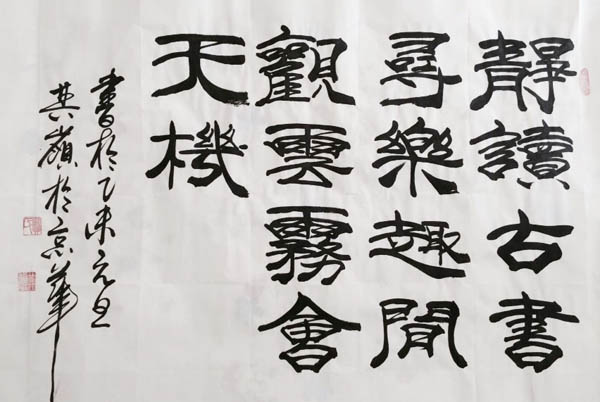 靜讀古書
尋樂趣閒
觀雲霧會
天機
書於乙未元旦
其嶺於京華